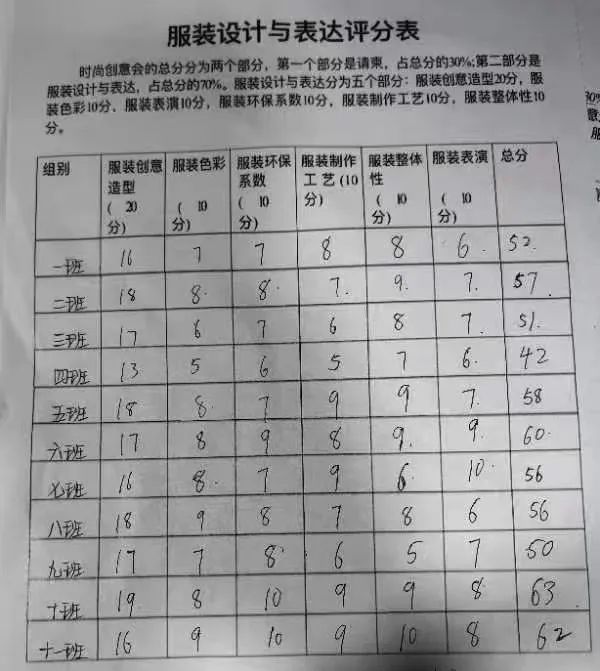 服装设计与表达评分表
时尚创意会的总分分为两个部分，第一个部分是请柬，占总分的30%;第二部分是
服装设计与表达，占总分的70%。服装设计与表达分为五个部分：服装创意造型20分，服
装色彩10分、服装表演10分，服装环保系数10分，服装制作工艺10分，服装整体性10
分。
组别 服装创意造型(20分) 服装色彩(10分) 服装环保系数(10分) 服装制作工艺(10分) 服装整体性(10分) 服装表演(10分) 总分
一班 16 7 7 8 8 6. 52.
二班 18 8. 8. 7. 9. 7. 57
三班 17 6 7 6 8 7. 51.
四班 13 5 6 5 7 6. 42
五班 18 8. 7 9 9 7. 58
六班 17 8 9 8 9. 9. 60.
七班 16 8. 7 9 6. 10. 56
八班 18 9 8 7 8 6 56
九班 17 7 8. 6 5 7 50
十班 19 8 10 9 9 8 63
十一班 16 9 10 9 10 8 62